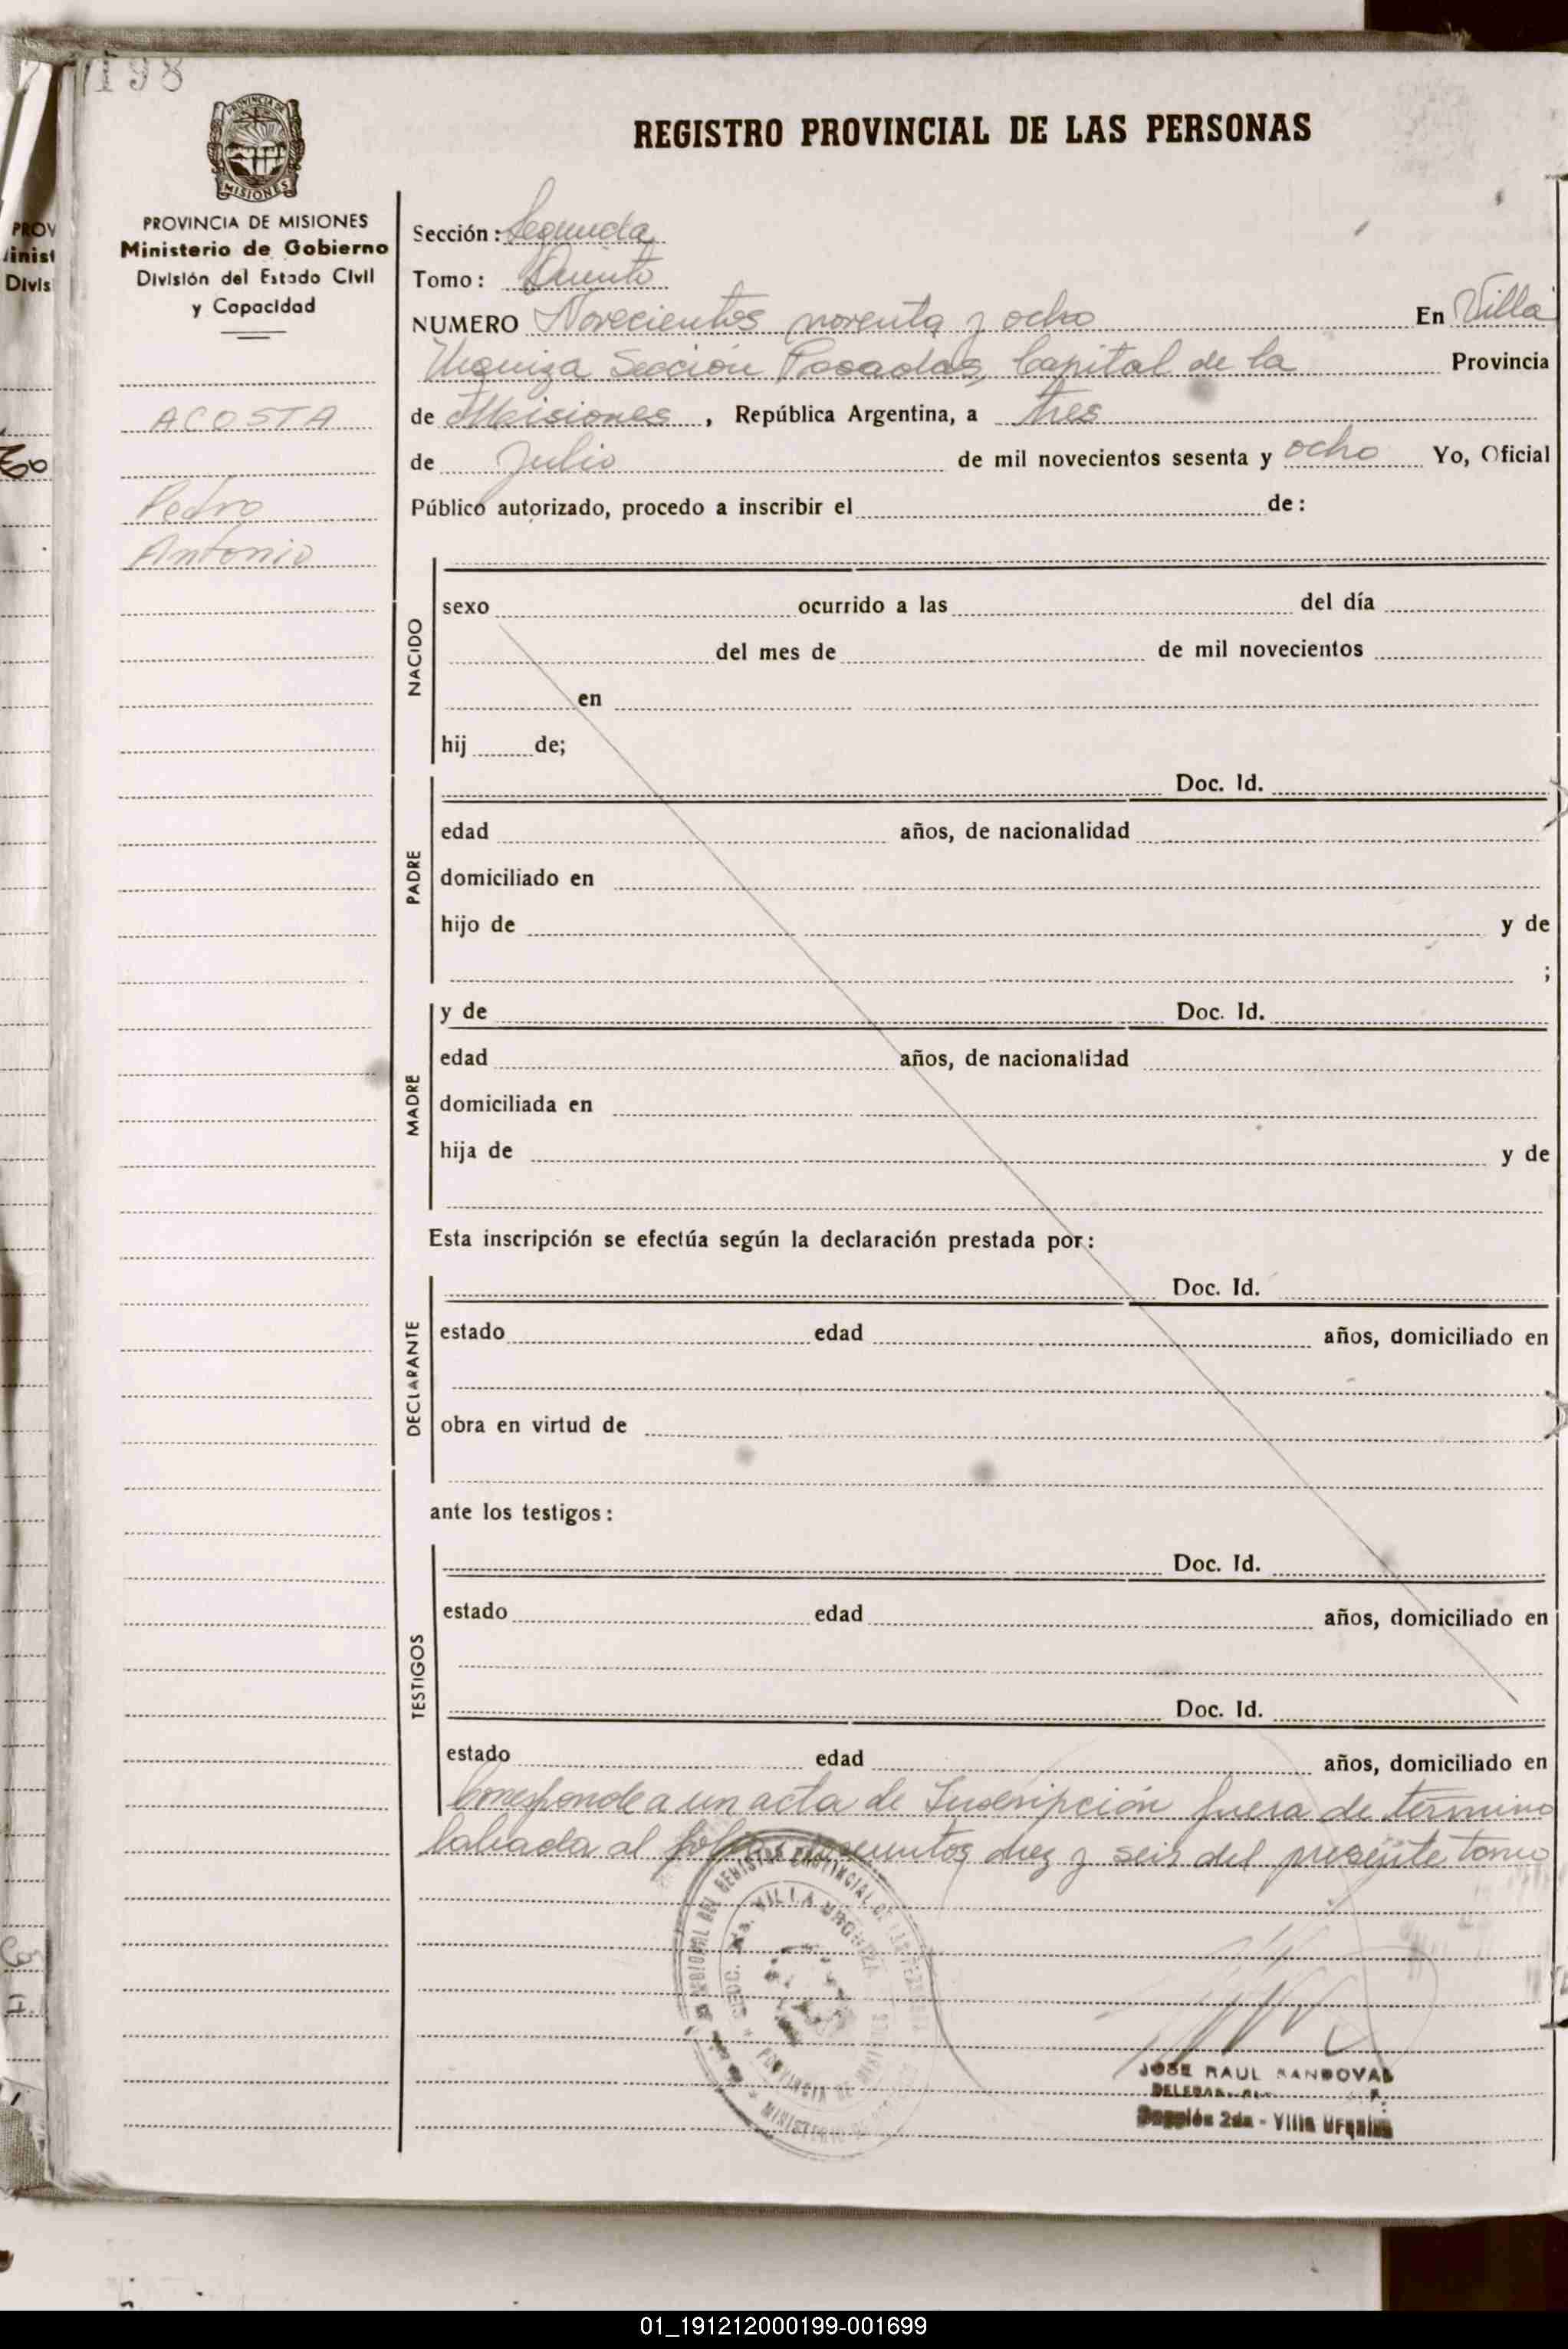 198
PROVINCIA DE
MISIONES
PROVINCIA DE MISIONES
Ministerio de Gobierno
División del Estado Civil
y Capacidad
ACOSTA
Pedro
Antonio
REGISTRO PROVINCIAL DE LAS PERSONAS
Sección: Segunda
Tomo: Quinto
NUMERO Novecientos noventa y ocho En Villa
Urquiza Sección Posadas, Capital de la Provincia
de Misiones, República Argentina, a tres
de Julio de mil novecientos sesenta y ocho Yo, Oficial
Público autorizado, procedo a inscribir el de:
NACIDO
sexo ocurrido a las del día
del mes de de mil novecientos
en
hij de;
PADRE
Doc. Id.
edad años, de nacionalidad
domiciliado en
hijo de y de
;
MADRE
y de Doc. Id.
edad años, de nacionalidad
domiciliada en
hija de y de
Esta inscripción se efectúa según la declaración prestada por:
DECLARANTE
Doc. Id.
estado edad años, domiciliado en
obra en virtud de
ante los testigos:
TESTIGOS
Doc. Id.
estado edad años, domiciliado en
Doc. Id.
estado edad años, domiciliado en
Corresponde a un acta de Inscripción fuera de término
labrada al diez y seis del presente tomo
JOSE RAUL SANDOVAL
2da - Villa Urquiza
01_191212000199-001699